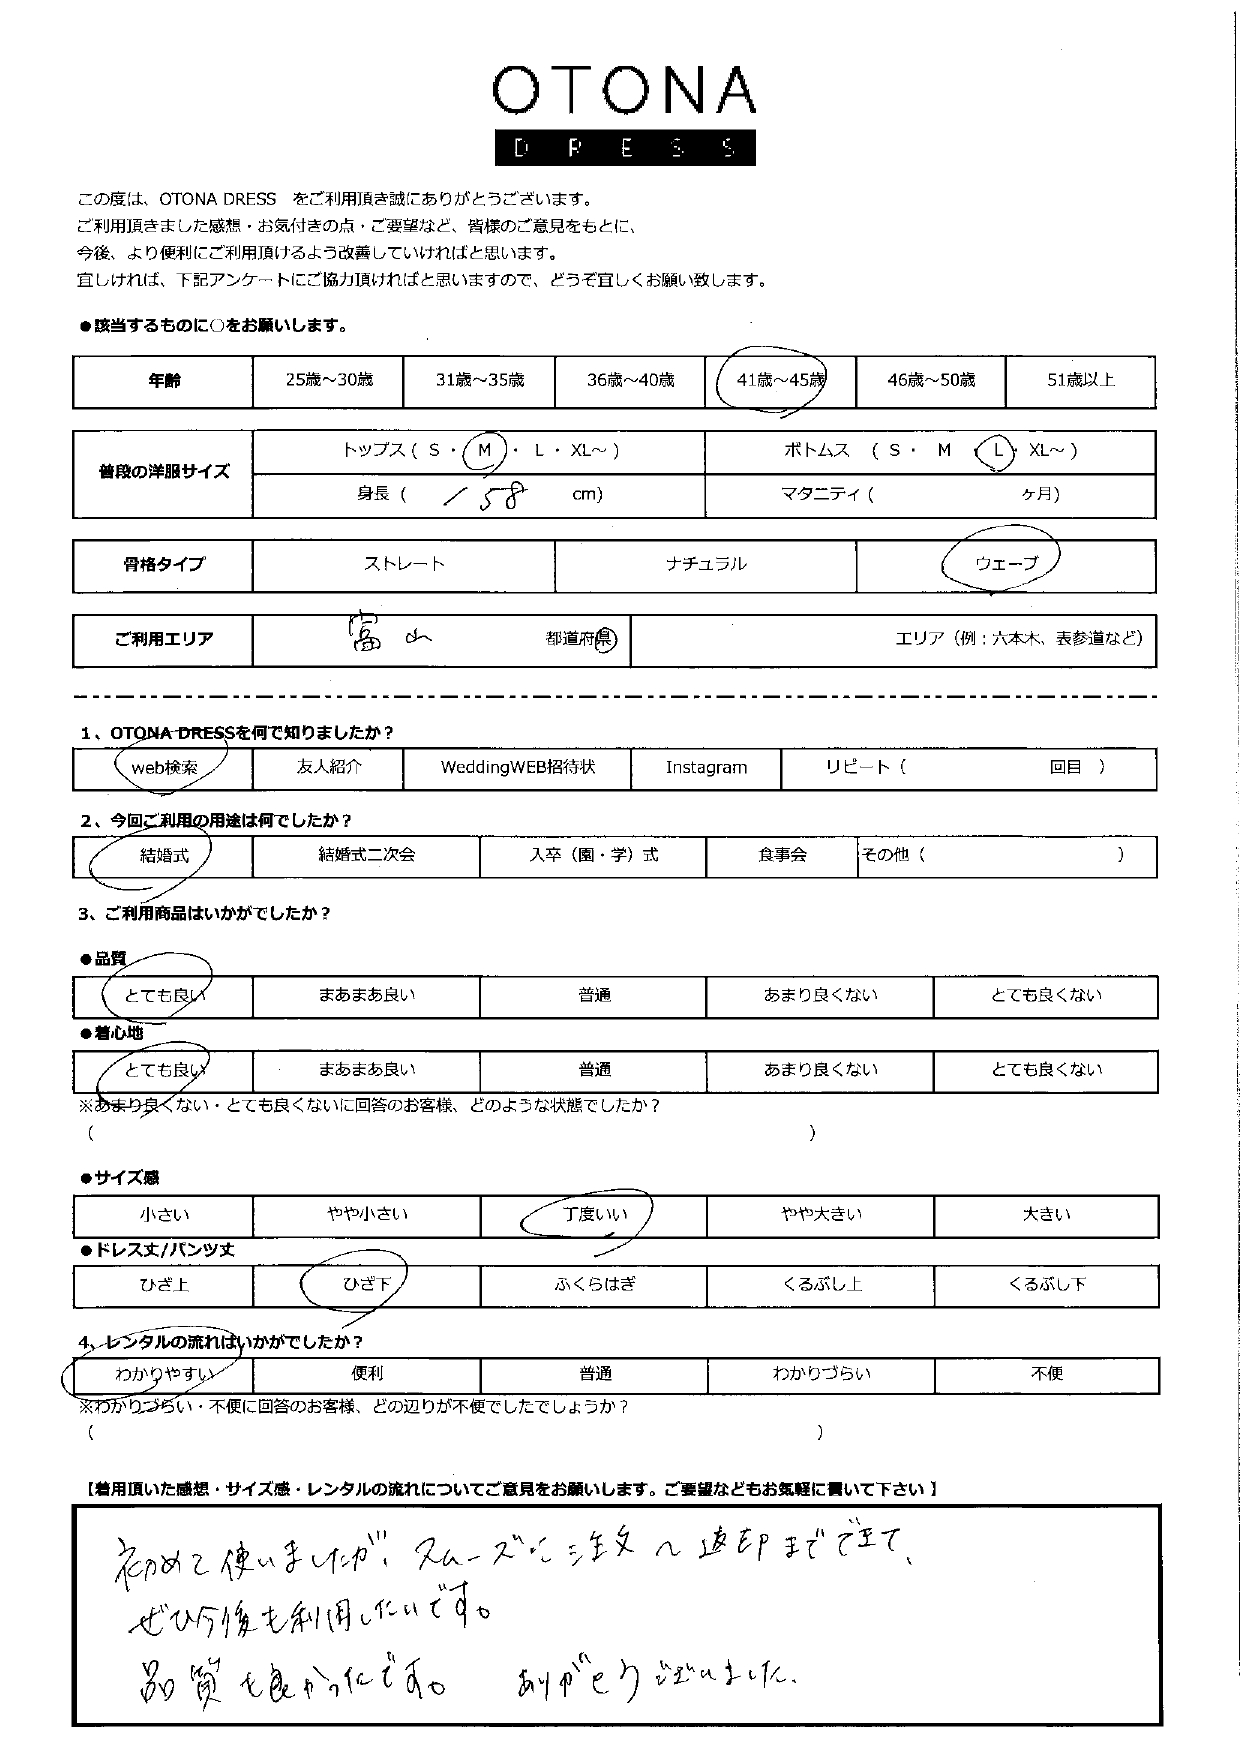 OTONA
DRESS
この度は、OTONA DRESS　をご利用頂き誠にありがとうございます。
ご利用頂きました感想・お気付きの点・ご要望など、皆様のご意見をもとに、
今後、より便利にご利用頂けるよう改善していければと思います。
宜しければ、下記アンケートにご協力頂ければと思いますので、どうぞ宜しくお願い致します。
●該当するものに○をお願いします。
年齢 25歳～30歳 31歳～35歳 36歳～40歳 41歳～45歳 46歳～50歳 51歳以上
普段の洋服サイズ トップス ( S ・ M ・ L ・ XL～ ) ボトムス ( S ・ M ・ L ・ XL～ )
身長 ( 158 cm) マタニティ ( ヶ月)
骨格タイプ ストレート ナチュラル ウェーブ
ご利用エリア 富山 都道府県 エリア（例：六本木、表参道など）
1、OTONA DRESSを何で知りましたか？
web検索 友人紹介 WeddingWEB招待状 Instagram リピート（ 回目 ）
2、今回ご利用の用途は何でしたか？
結婚式 結婚式二次会 入卒（園・学）式 食事会 その他（ ）
3、ご利用商品はいかがでしたか？
●品質
とても良い まあまあ良い 普通 あまり良くない とても良くない
●着心地
とても良い まあまあ良い 普通 あまり良くない とても良くない
※あまり良くない・とても良くないに回答のお客様、どのような状態でしたか？
（ ）
●サイズ感
小さい やや小さい 丁度いい やや大きい 大きい
●ドレス丈/パンツ丈
ひざ上 ひざ下 ふくらはぎ くるぶし上 くるぶし下
4、レンタルの流れはいかがでしたか？
わかりやすい 便利 普通 わかりづらい 不便
※わかりづらい・不便に回答のお客様、どの辺りが不便でしたでしょうか？
（ ）
【着用頂いた感想・サイズ感・レンタルの流れについてご意見をお願いします。ご要望などもお気軽に書いて下さい】
初めて使いましたが、スムーズに注文〜返却までできて、
ぜひ今後も利用したいです。
品質も良かったです。 ありがとうございました。